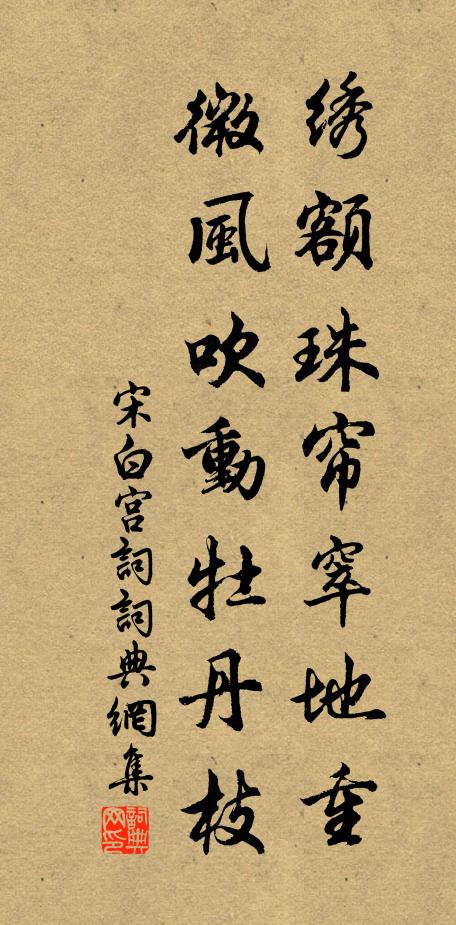 绣額珠帘窣地垂
微風吹動牡丹枝
宋白宫詞詞典網集
詞典網印